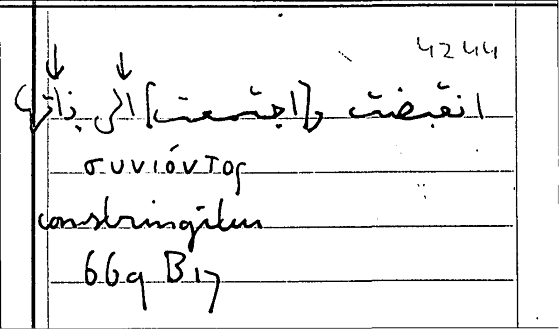 4244
انقبضت و[اجتمعت] الى ذاتها
συνιόντος
constringitur
669 B17